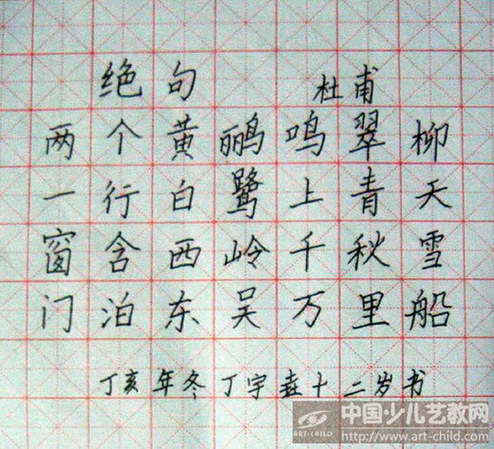 绝句 杜甫
两个黄鹂鸣翠柳
一行白鹭上青天
窗含西岭千秋雪
门泊东吴万里船
丁亥年冬丁宇壵十二岁书
中国少儿艺教网
ART-CHILD
http://www.art-child.com